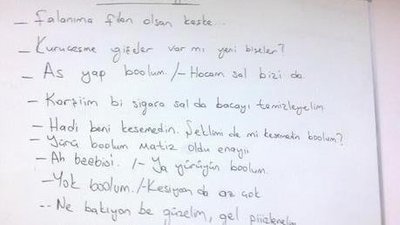 - Falanıma filan olsan keşke..
- Kuruçeşme gişeler var mı yeni bişeler?
- As yap boolum /- Hocam sal bizi da.
- Karşiim bi sigara sal da bacayı temizleyelim
- Hadi beni kesemedin. Şeklimi de mi kesemedin boolum?
- Yürü boolum matiz oldu enayii
- Ah beebisi. /- Ya yürüyün boolum.
- Yok boolum. /- Kesiyon ab az çok
-- Ne bakıyon be güzelim, gel